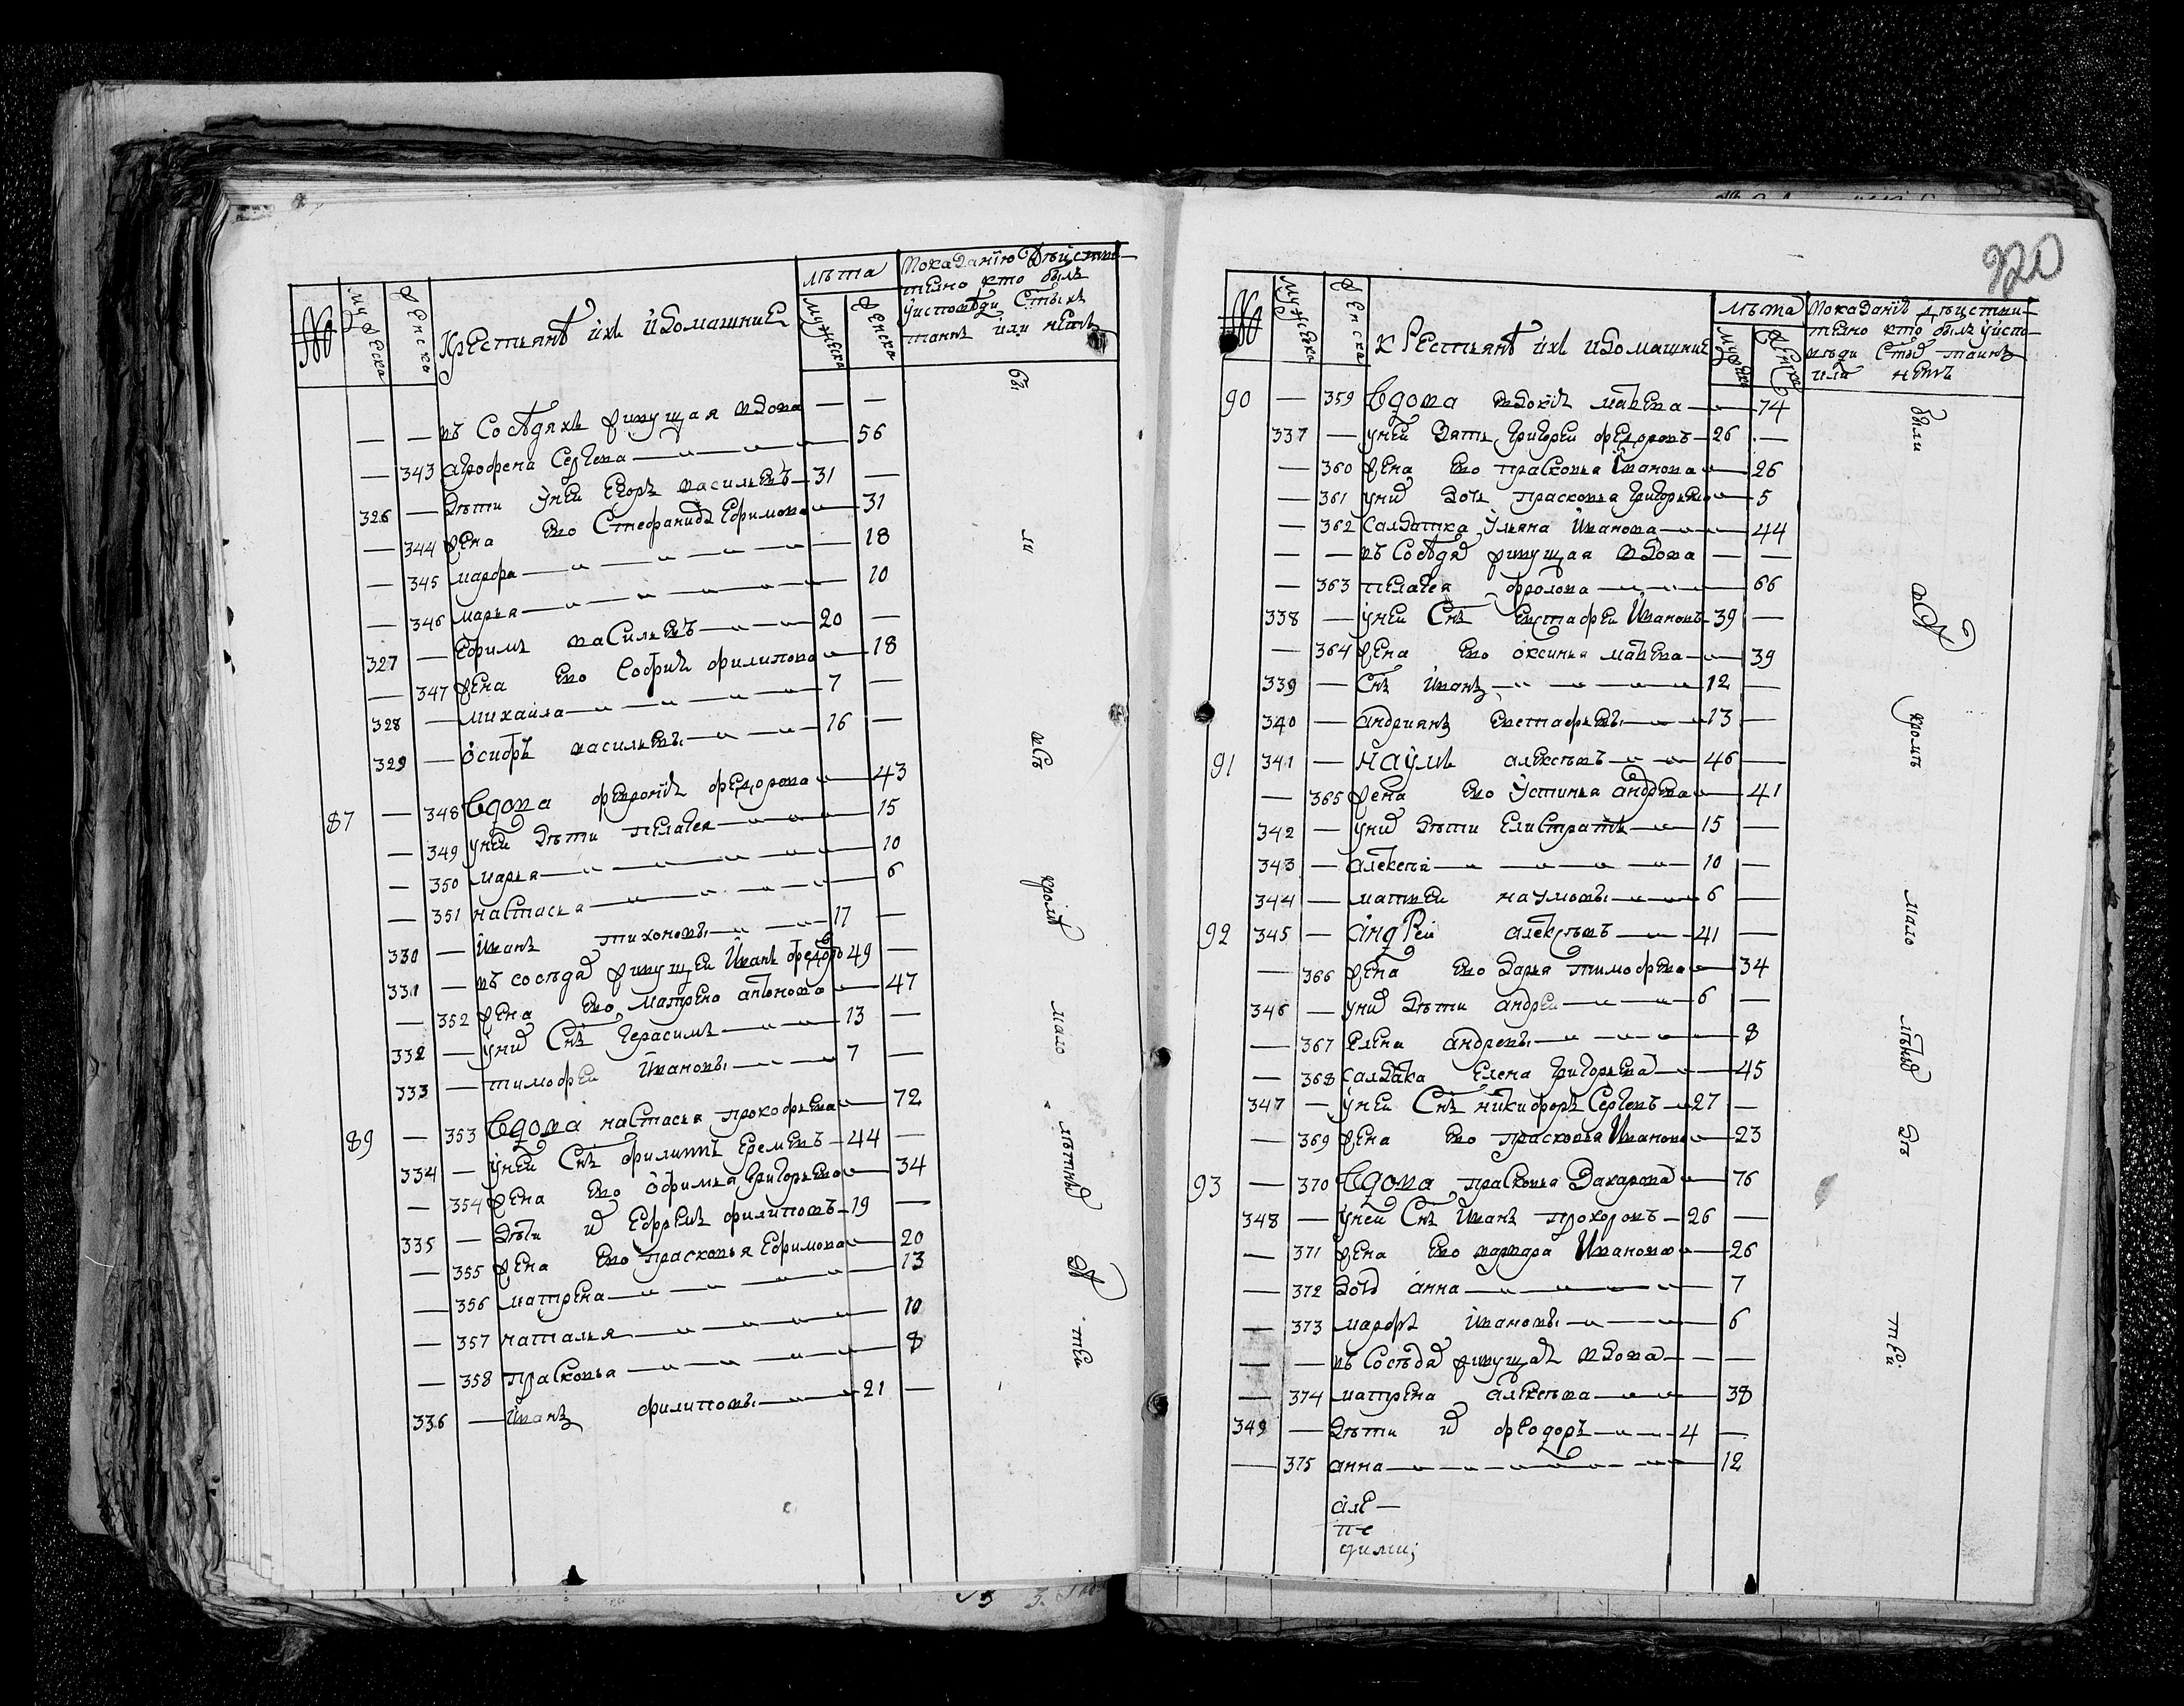 № мужеска женска Крестьянѣ ихъ и домашние
лѣта
мужеска женска
показанїю дѣйстви-
телно кто былъ
у исповѣди с[вя]тыхъ
таинъ или нетъ
— — въ соседяхъ живущая вдова — —
— 343 агрофена Сергева — 56
326 — дѣти у ней Егоръ васильевъ 31 —
— 344 жена ево Стефанида Ефимова 31
— 345 марфа — 18
— 346 марья — 10
327 — Ефимъ васильевъ 20 —
— 347 жена ево Софиѧ филипова 18
328 — михаила 7 —
329 — Осифъ васильевы 16 —
87 — 348 Вдова февронїѧ федорова 43
— 349 у ней дѣти пелагея 15
— 350 марья 10
— 351 настасья 6
330 — Иванъ тихоновы 17 —
331 — въ соседях живущей Иванъ федоро 49 —
— 352 жена ево матрена антонова 47
332 — у них Снъ герасимъ 13 —
333 — тимофеи Ивановы 7 —
89 — 353 Вдова настасья прокофьева 72
334 — у ней Снъ филиппъ Еремевъ 44 —
— 354 жена ево Офимья григорьева 34
335 — дѣти их Ефремъ филиповъ 19 —
— 355 жена ево прасковья Ефимова 20
— 356 матрена 13
— 357 наталья 10
— 358 прасковья 8
336 — Иванъ филиповы 21 —
бы
ли
всѣ
кромѣ
мало
лѣтних
де
теи
920
№ мужеска женска Крестьянѣ ихъ и домашние
лѣта
мужеска женска
показанїе дѣистви-
телно кто былъ у испо-
вѣди Стых таинъ
или нетъ
90 — 359 Вдова авдокїѧ матвева 74
337 — у ней зять григореи федоровъ 26 —
— 360 жена ево прасковья Иванова 26
— 361 у них дочь прасковья григорьева 5
— 362 Салдатка Ульяна Иванова 44
— — въ Соседях живущая вдова — —
— 363 пелагея фролова 66
338 — у ней Снъ Евстафеи Ивановъ 39 —
— 364 жена ево оксинья матвева 39
339 — Снъ Иванъ 12 —
340 — андриянъ Евстафьевы 13 —
91 341 — Наумъ алексѣевъ 46 —
— 365 жена ево Устинья андрева 41
342 — у них дѣти Елистратъ 15 —
343 — алексеи 10 —
344 — матвеи наумовы 6 —
92 345 — андреи алексѣевъ 41 —
— 366 жена ево дарья тимофева 34
346 — у них дѣти андреи 6 —
— 367 Елена андревы 8
— 368 Салдатка Елена григорьева 45
347 — у ней Снъ никифоръ Сергевъ 27 —
— 369 жена ево прасковья Иванова 23
93 — 370 Вдова прасковья Захарова 76
348 — у ней Снъ Иванъ прохоровъ 26 —
— 371 жена ево варвара Иванова 26
— 372 дочь анна 7
— 373 марфа Ивановы 6
— — въ Соседях живущаѧ вдова — —
— 374 матрена алексѣева 38
349 — дѣти их феодоръ 4 —
— 375 анна 12
были
всѣ
кромѣ
мало
лѣтних
дѣ
теи